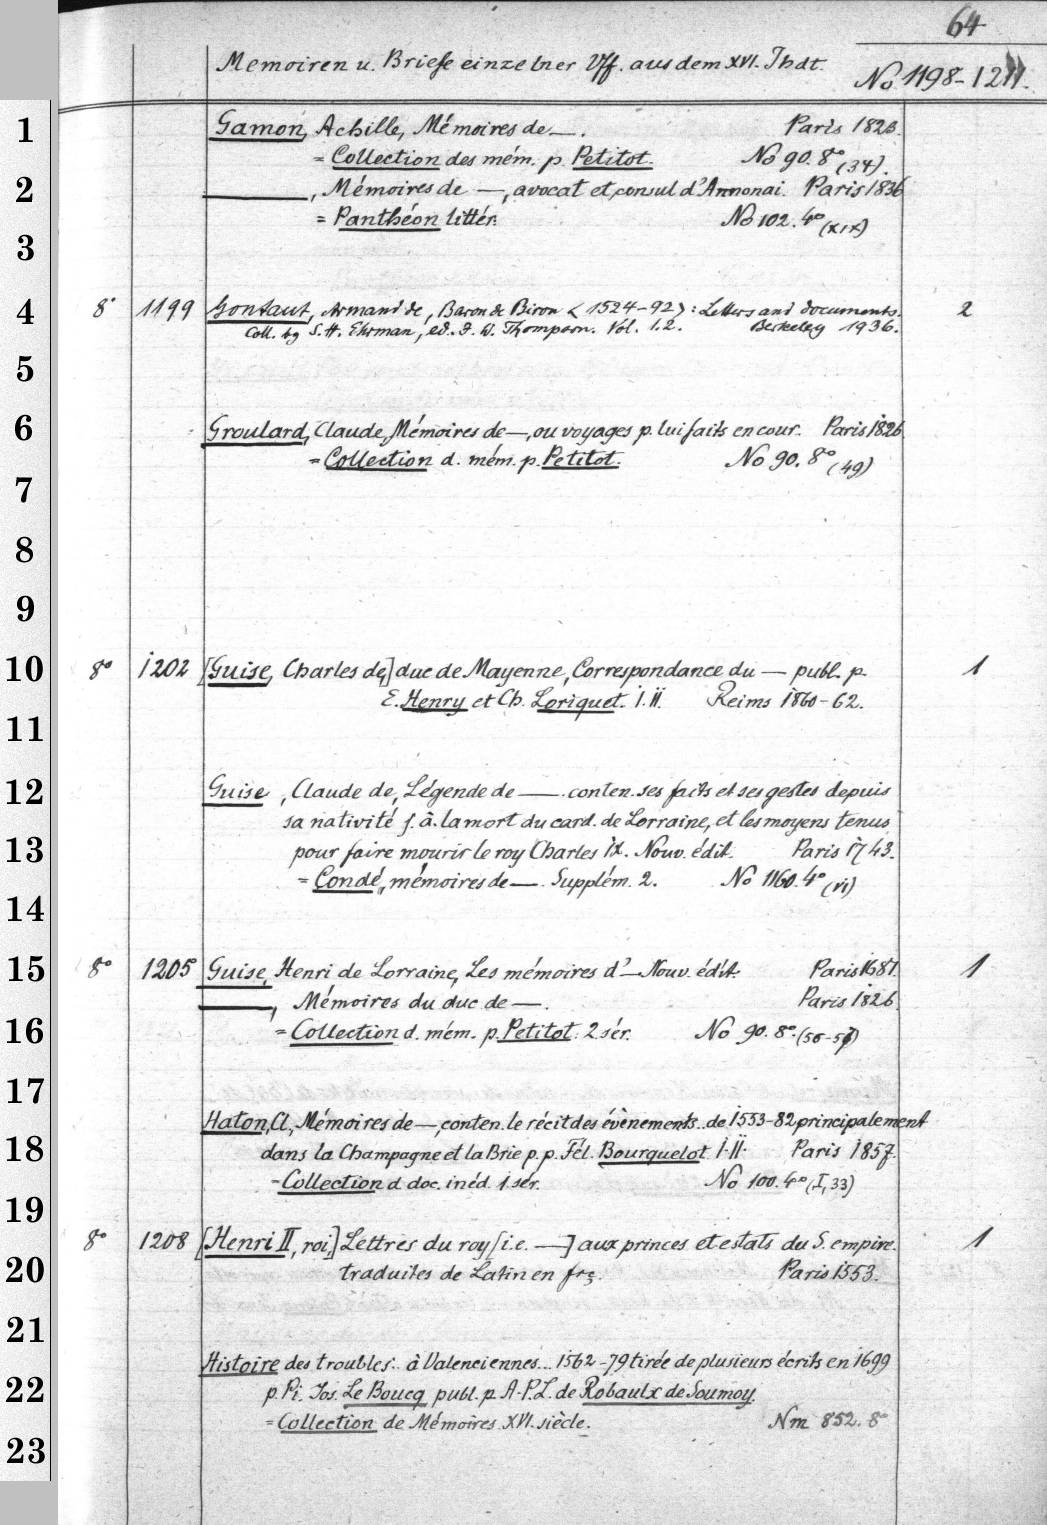 64
Memoiren u. Briefe einzelner Vff. aus dem XVI. Jhdt.
No 1198-1211.
1
Gamon, Achille, Mémoires de —. Paris 1823.
= Collection des mém. p. Petitot. No 90. 8° (34).
2
——, Mémoires de —, avocat et consul d'Annonai. Paris 1836
= Panthéon littér. No 102. 4° (XIX)
3
4 8° 1199 Gontaut, Armand de, Baron de Biron <1524-92>: Letters and documents. 2
Coll. by S. H. Ehrman, ed. J. W. Thompson. Vol. 1.2. Berkeley 1936.
5
6 Groulard, Claude, Mémoires de —, ou voyages p. lui faits en cour. Paris 1826
= Collection d. mém. p. Petitot. No 90. 8° (49)
7
8
9
10 8° 1202 [Guise, Charles de,] duc de Mayenne, Correspondance du — publ. p. 1
E. Henry et Ch. Loriquet. I. II. Reims 1860-62.
11
12 Guise, Claude de, Légende de —. conten. ses faits et ses gestes depuis
sa nativité j. à. la mort du card. de Lorraine, et les moyens tenus
13 pour faire mourir le roy Charles IX. Nouv. édit. Paris 1743.
= Condé, mémoires de —. Supplém. 2. No 1160. 4° (VI)
14
15 8° 1205 Guise, Henri de Lorraine, Les mémoires d'— Nouv. édit. Paris 1687. 1
——, Mémoires du duc de —. Paris 1826.
16 = Collection d. mém. p. Petitot. 2 sér. No 90. 8°. (56-57)
17
Haton, Cl., Mémoires de —, conten. le récit des évènements.. de 1553-82 principalement
18 dans la Champagne et la Brie p. p. Fél. Bourquelot. I. II. Paris 1857.
= Collection d. doc. inéd. 1. sér. No 100. 4° (I, 33)
19
8° 1208 [Henri II, roi,] Lettres du roy [i.e. —] aux princes et estats du S. empire. 1
20 traduites de Latin en frç. Paris 1553.
21
Histoire des troubles.. à Valenciennes... 1562-79 tirée de plusieurs écrits en 1699
22 p. Pi. Jos. Le Boucq publ. p. A.-P.-L. de Robaulx de Soumoy.
= Collection de Mémoires XVI. siècle. Nm 852. 8°
23